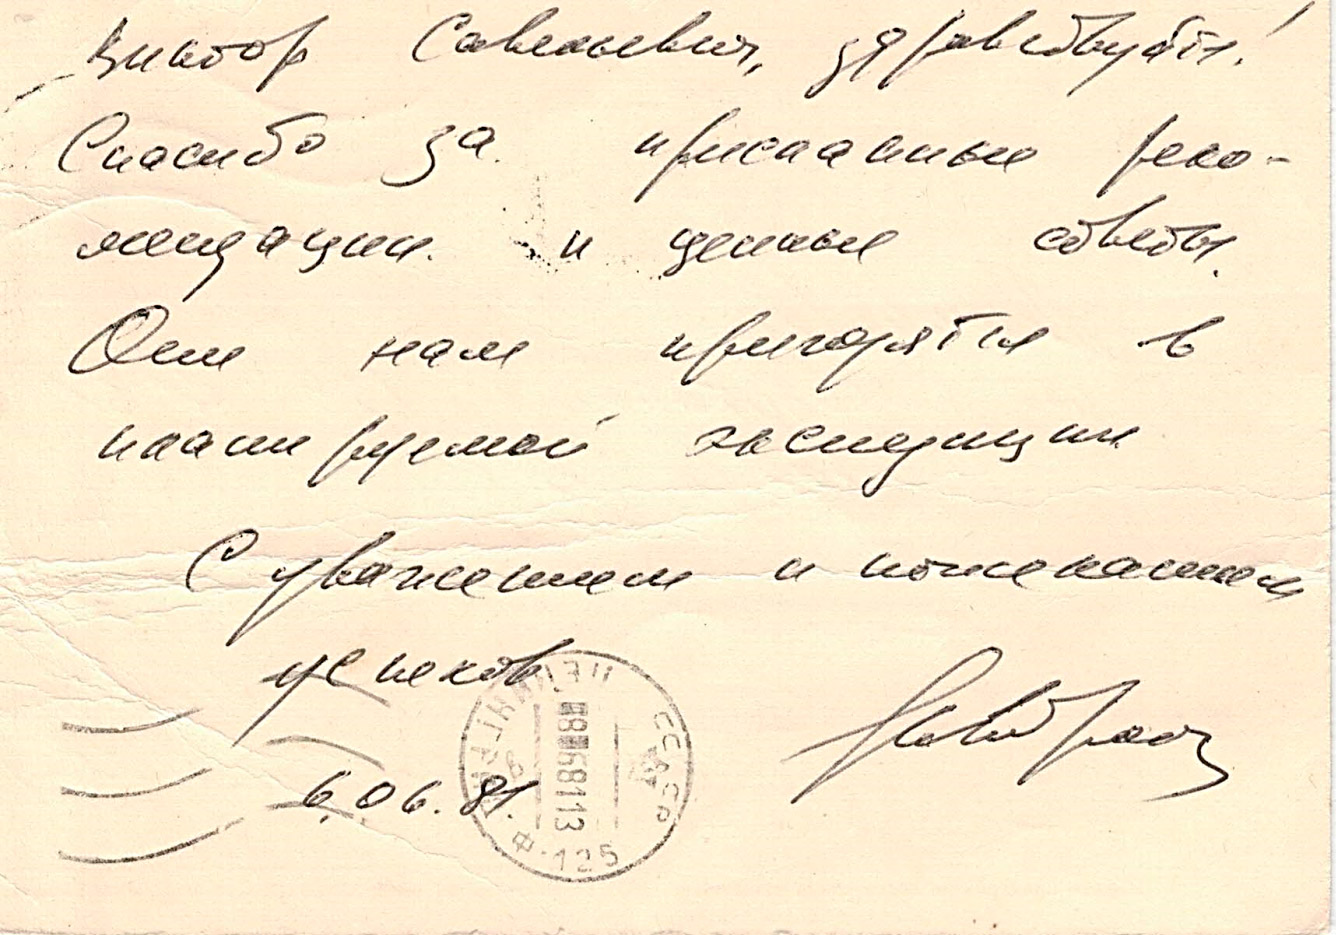 Виктор Савельевич, здравствуйте!
Спасибо за присланные реко-
мендации и ценные советы.
Они нам пригодятся в
планируемой экспедиции
С уважением и пожеланием
успехов
6.06.81.
ЛЕНИНГРАД
СССР
Ф-125